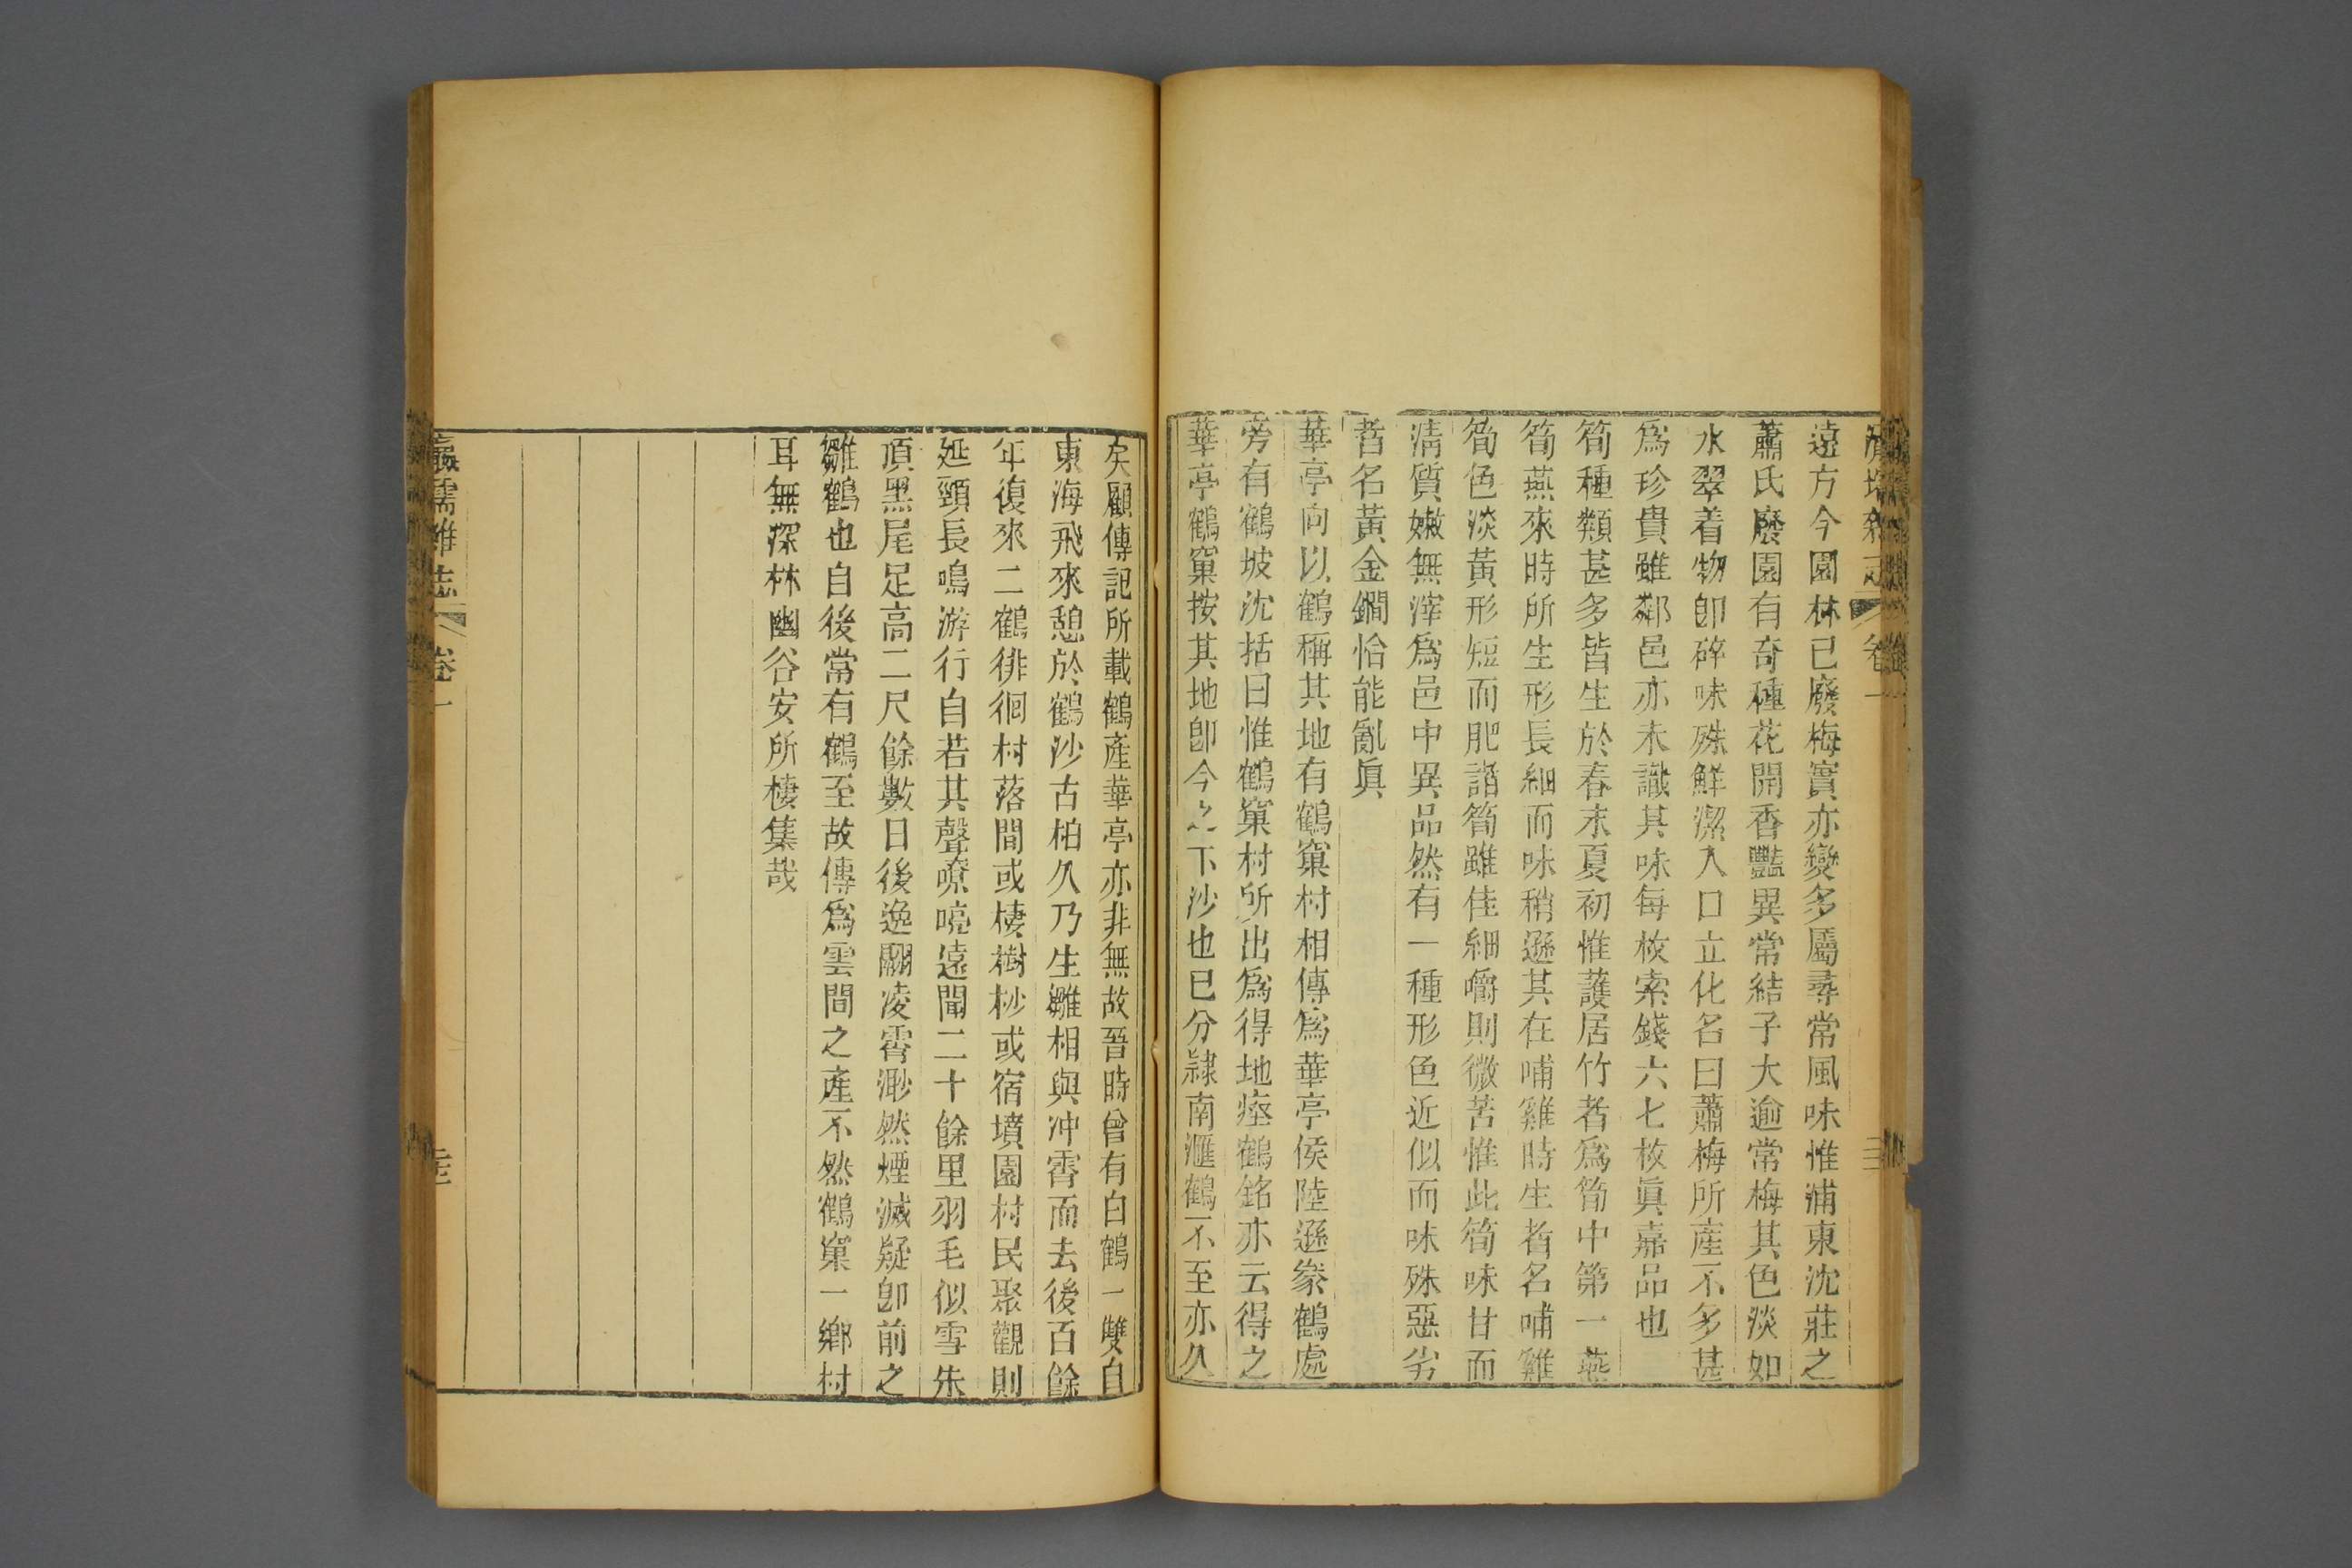 遠方今園林已廢梅實亦變多屬尋常風味惟浦東沈莊之
蕭氏廢園有奇種花開香豔異常結子大逾常梅其色淡如
水翠着物卽碎味殊鮮潔入口立化名曰蕭梅所產不多甚
爲珍貴雖鄰邑亦未識其味每枚索錢六七枚眞嘉品也
筍種類甚多皆生於春末夏初惟護居竹者爲筍中第一燕
筍燕來時所生形長細而味稍遜其在哺雞時生者名哺雞
筍色淡黃形短而肥諸筍雖佳細嚼則微苦惟此筍味甘而
清質嫩無滓爲邑中異品然有一種形色近似而味殊惡劣
者名黃金鐗恰能亂眞
華亭向以鶴稱其地有鶴窠村相傳爲華亭侯陸遜豢鶴處
旁有鶴坡沈括曰惟鶴窠村所出爲得地瘞鶴銘亦云得之
華亭鶴窠按其地卽今之下沙也巳分隸南滙鶴不至亦久
矣顧傳記所載鶴產華亭亦非無故晉時曾有白鶴一雙自
東海飛來憩於鶴沙古柏久乃生雛相與冲霄而去後百餘
年復來二鶴徘徊村落間或棲樹杪或宿墳園村民聚觀則
延頸長鳴游行自若其聲嘹喨遠聞二十餘里羽毛似雪朱
頂黑尾足高二尺餘數日後逸翮凌霄渺然煙滅疑卽前之
雛鶴也自後常有鶴至故傳爲雲間之產不然鶴窠一鄉村
耳無深林幽谷安所棲集哉
卷一